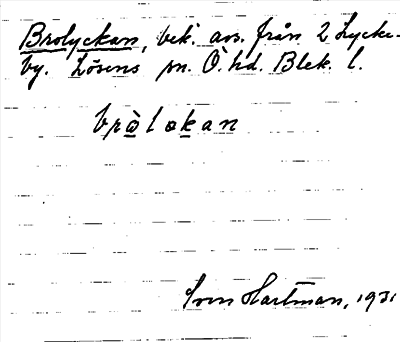 Brolyckan, bek. avs. från 2 Lycke-
by. Lösens sn. Ö. hd. Blek. l.
bròløkan
Sven Hartman, 1931